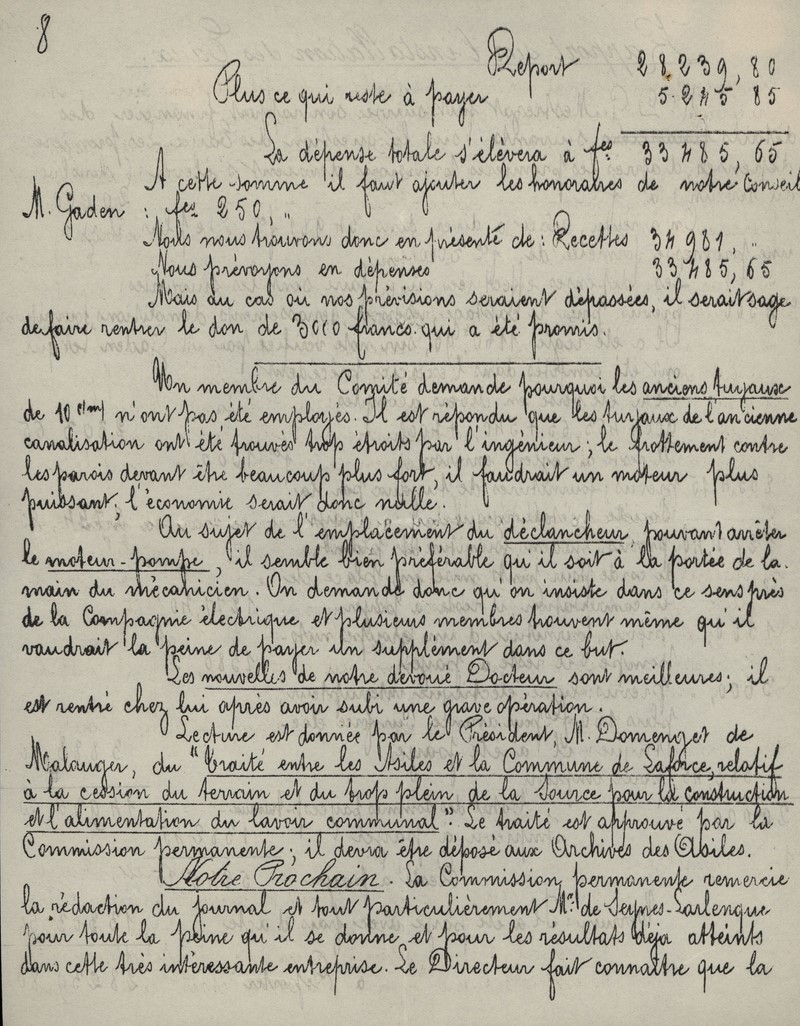 8
Report 28.239,80
Plus ce qui reste à payer 5.245 85
La dépense totale s'élèvera à fcs 33485,65
A cette somme il faut ajouter les honoraires de notre Conseil
M. Gaden : fcs 250, "
Nous nous trouvons donc en présence de : Recettes 34981, "
Nous prévoyons en dépenses 33485,65
Mais au cas où nos prévisions seraient dépassées, il serait sage
de faire rentrer le don de 3000 francs qui a été promis.
Un membre du Comité demande pourquoi les anciens tuyaux
de 10 c(m) n'ont pas été employés. Il est répondu que les tuyaux de l'ancienne
canalisation ont été trouvés trop étroits par l'ingénieur ; le frottement contre
les parois devant être beaucoup plus fort, il faudrait un moteur plus
puissant ; l'économie serait donc nulle.
Au sujet de l'emplacement du déclancheur pouvant arrêter
le moteur-pompe, il semble bien préférable qu'il soit à la portée de la
main du mécanicien. On demande donc qu'on insiste dans ce sens près
de la Compagnie électrique et plusieurs membres trouvent même qu'il
vaudrait la peine de payer un supplément dans ce but.
Les nouvelles de notre dévoué Docteur sont meilleures ; il
est rentré chez lui après avoir subi une grave opération.
Lecture est donnée par le Président, M. Domenget de
Malauger, du "Traité entre les Asiles et la Commune de Laforce, relatif
à la cession du terrain et du trop plein de la Source pour la construction
et l'alimentation du lavoir communal". Le traité est approuvé par la
Commission permanente ; il devra être déposé aux Archives des Asiles.
Notre Prochain. La Commission permanente remercie
la rédaction du journal et tout particulièrement Mr. de Seynes-Larlenque
pour toute la peine qu'il se donne et pour les résultats déjà atteints
dans cette très intéressante entreprise. Le Directeur fait connaître que la